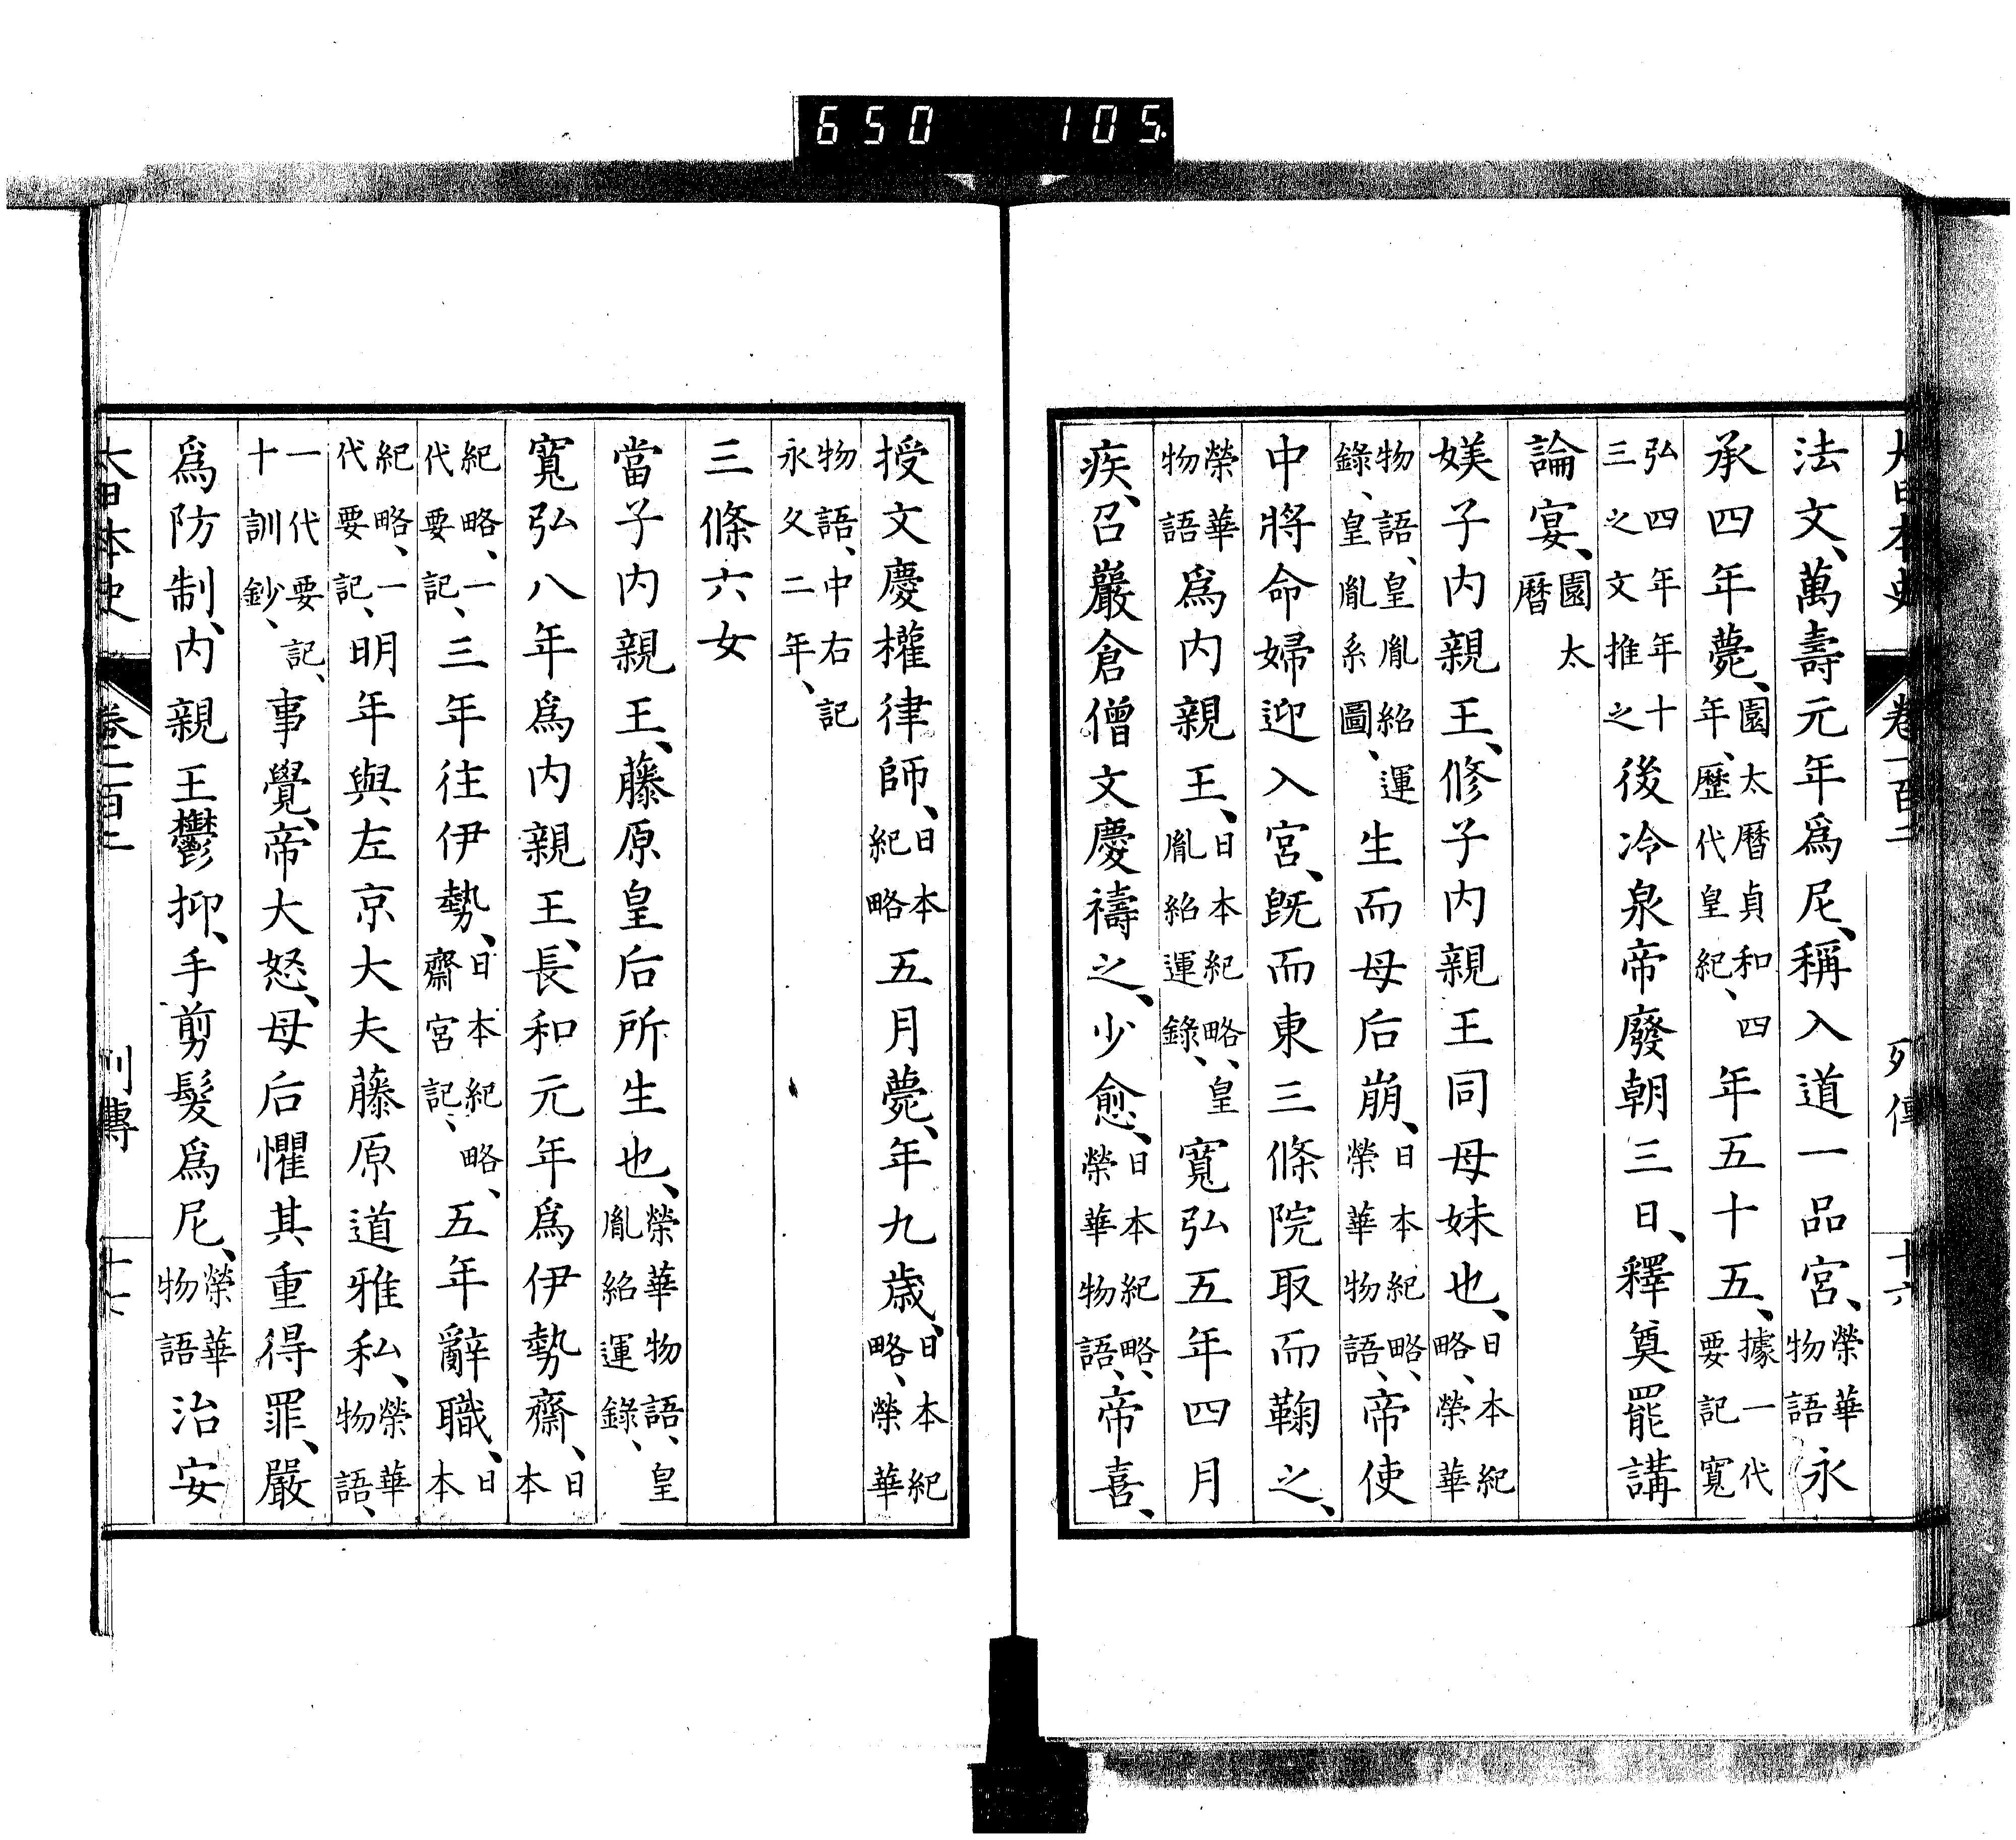 650 105
大日本史 卷一百二 列傳 十六
法文、萬壽元年爲尼、稱入道一品宮、榮華物語永
承四年薨、園太曆貞和四年、歷代皇紀、年五十五、據一代要記寬
弘四年年十三之文推之後冷泉帝廢朝三日、釋奠罷講
論宴、園太曆
媄子内親王、修子内親王同母妹也、日本紀略、榮華
物語、皇胤紹運錄、皇胤系圖、生而母后崩、日本紀略、榮華物語、帝使
中將命婦迎入宮、既而東三條院取而鞠之、
榮華物語爲内親王、日本紀略、皇胤紹運錄、寬弘五年四月
疾、召巖倉僧文慶禱之、少愈、日本紀略、榮華物語、帝喜、
授文慶權律師、日本紀略五月薨、年九歲、日本紀略、榮華
物語、中右記永久二年、
三條六女
當子内親王、藤原皇后所生也、榮華物語、皇胤紹運錄、
寬弘八年爲内親王、長和元年爲伊勢齋、日本
紀略、一代要記、三年往伊勢、日本紀略、齋宮記、五年辭職、日本
紀略、一代要記、明年與左京大夫藤原道雅私、榮華物語、
一代要記、十訓鈔、事覺、帝大怒、母后懼其重得罪、嚴
爲防制、内親王鬱抑、手剪髮爲尼、榮華物語治安
大日本史 卷一百二 列傳 十七